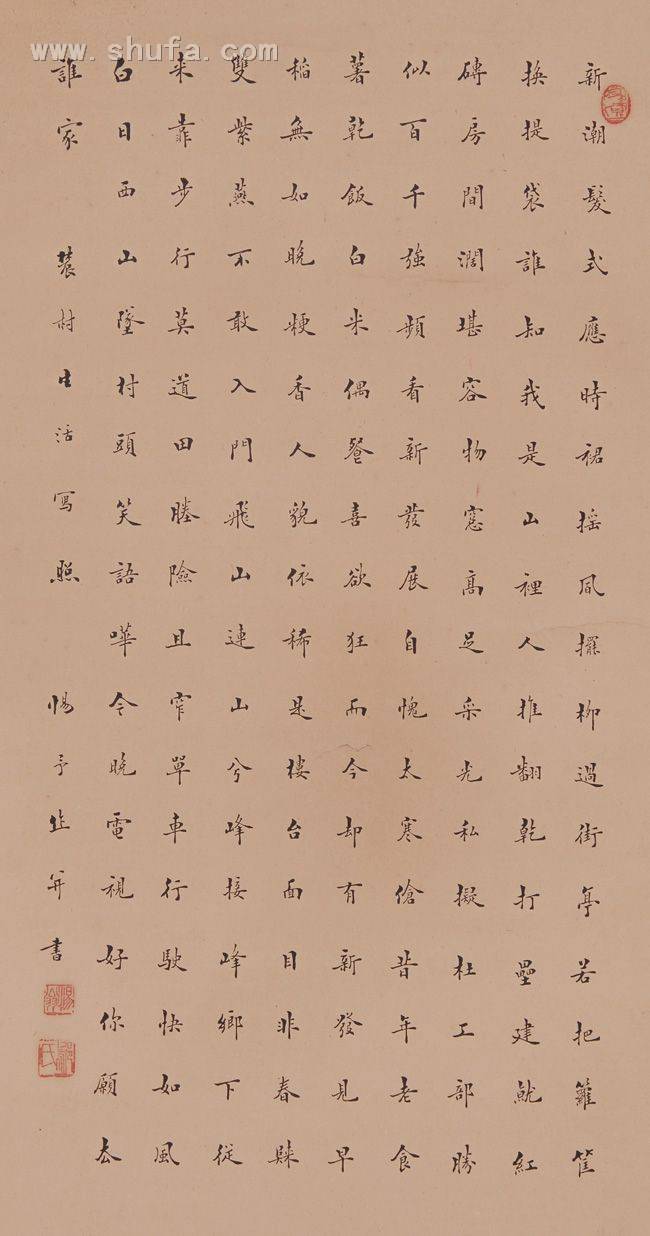 www.shufa.com
新潮髮式應時裙搖風擺柳過街亭若把籮筐
換提袋誰知我是山裡人推翻乾打壘建就紅
磚房間濶堪容物窓高足采光私擬杜工部勝
似百千強頻看新發展自愧太寒傖昔年老食
薯乾飯白米偶飱喜欲狂而今却有新發見早
稻無如晚粳香人貌依稀是樓台面目非春歸
雙紫燕不敢入門飛山連山兮峰接峰鄉下從
来靠步行莫道田塍險且窄單車行駛快如風
白日西山墜村頭笑語嘩今晚電視好你願去
誰家 農村生活寫照 惕予作并書